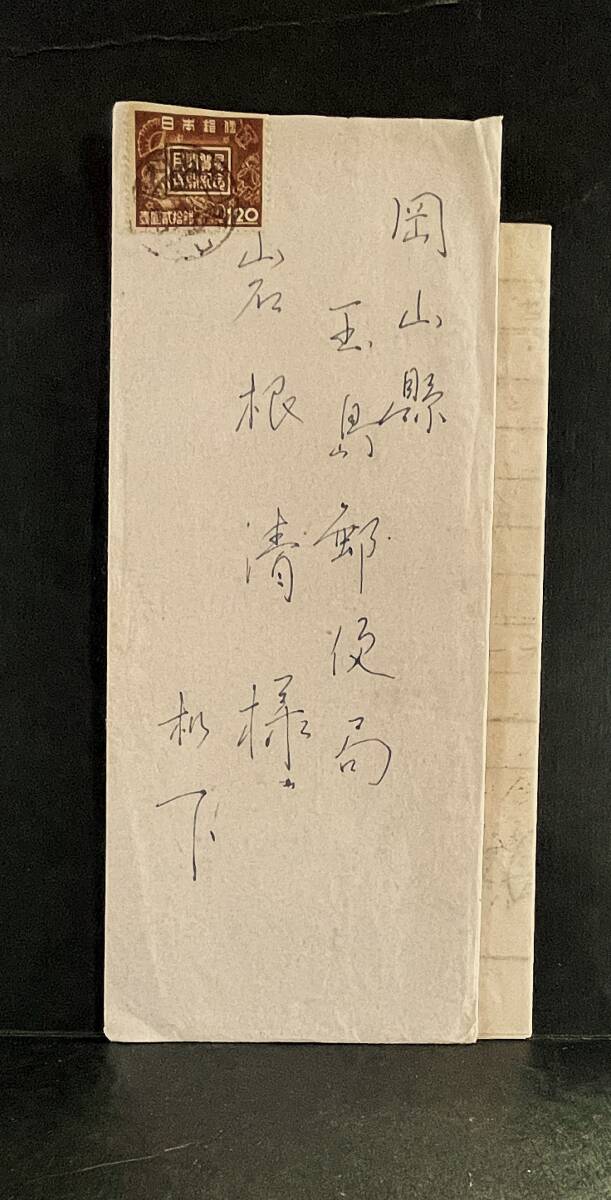 岡山縣
玉島郵便局
岩根清様
机下
日本郵便
1.20